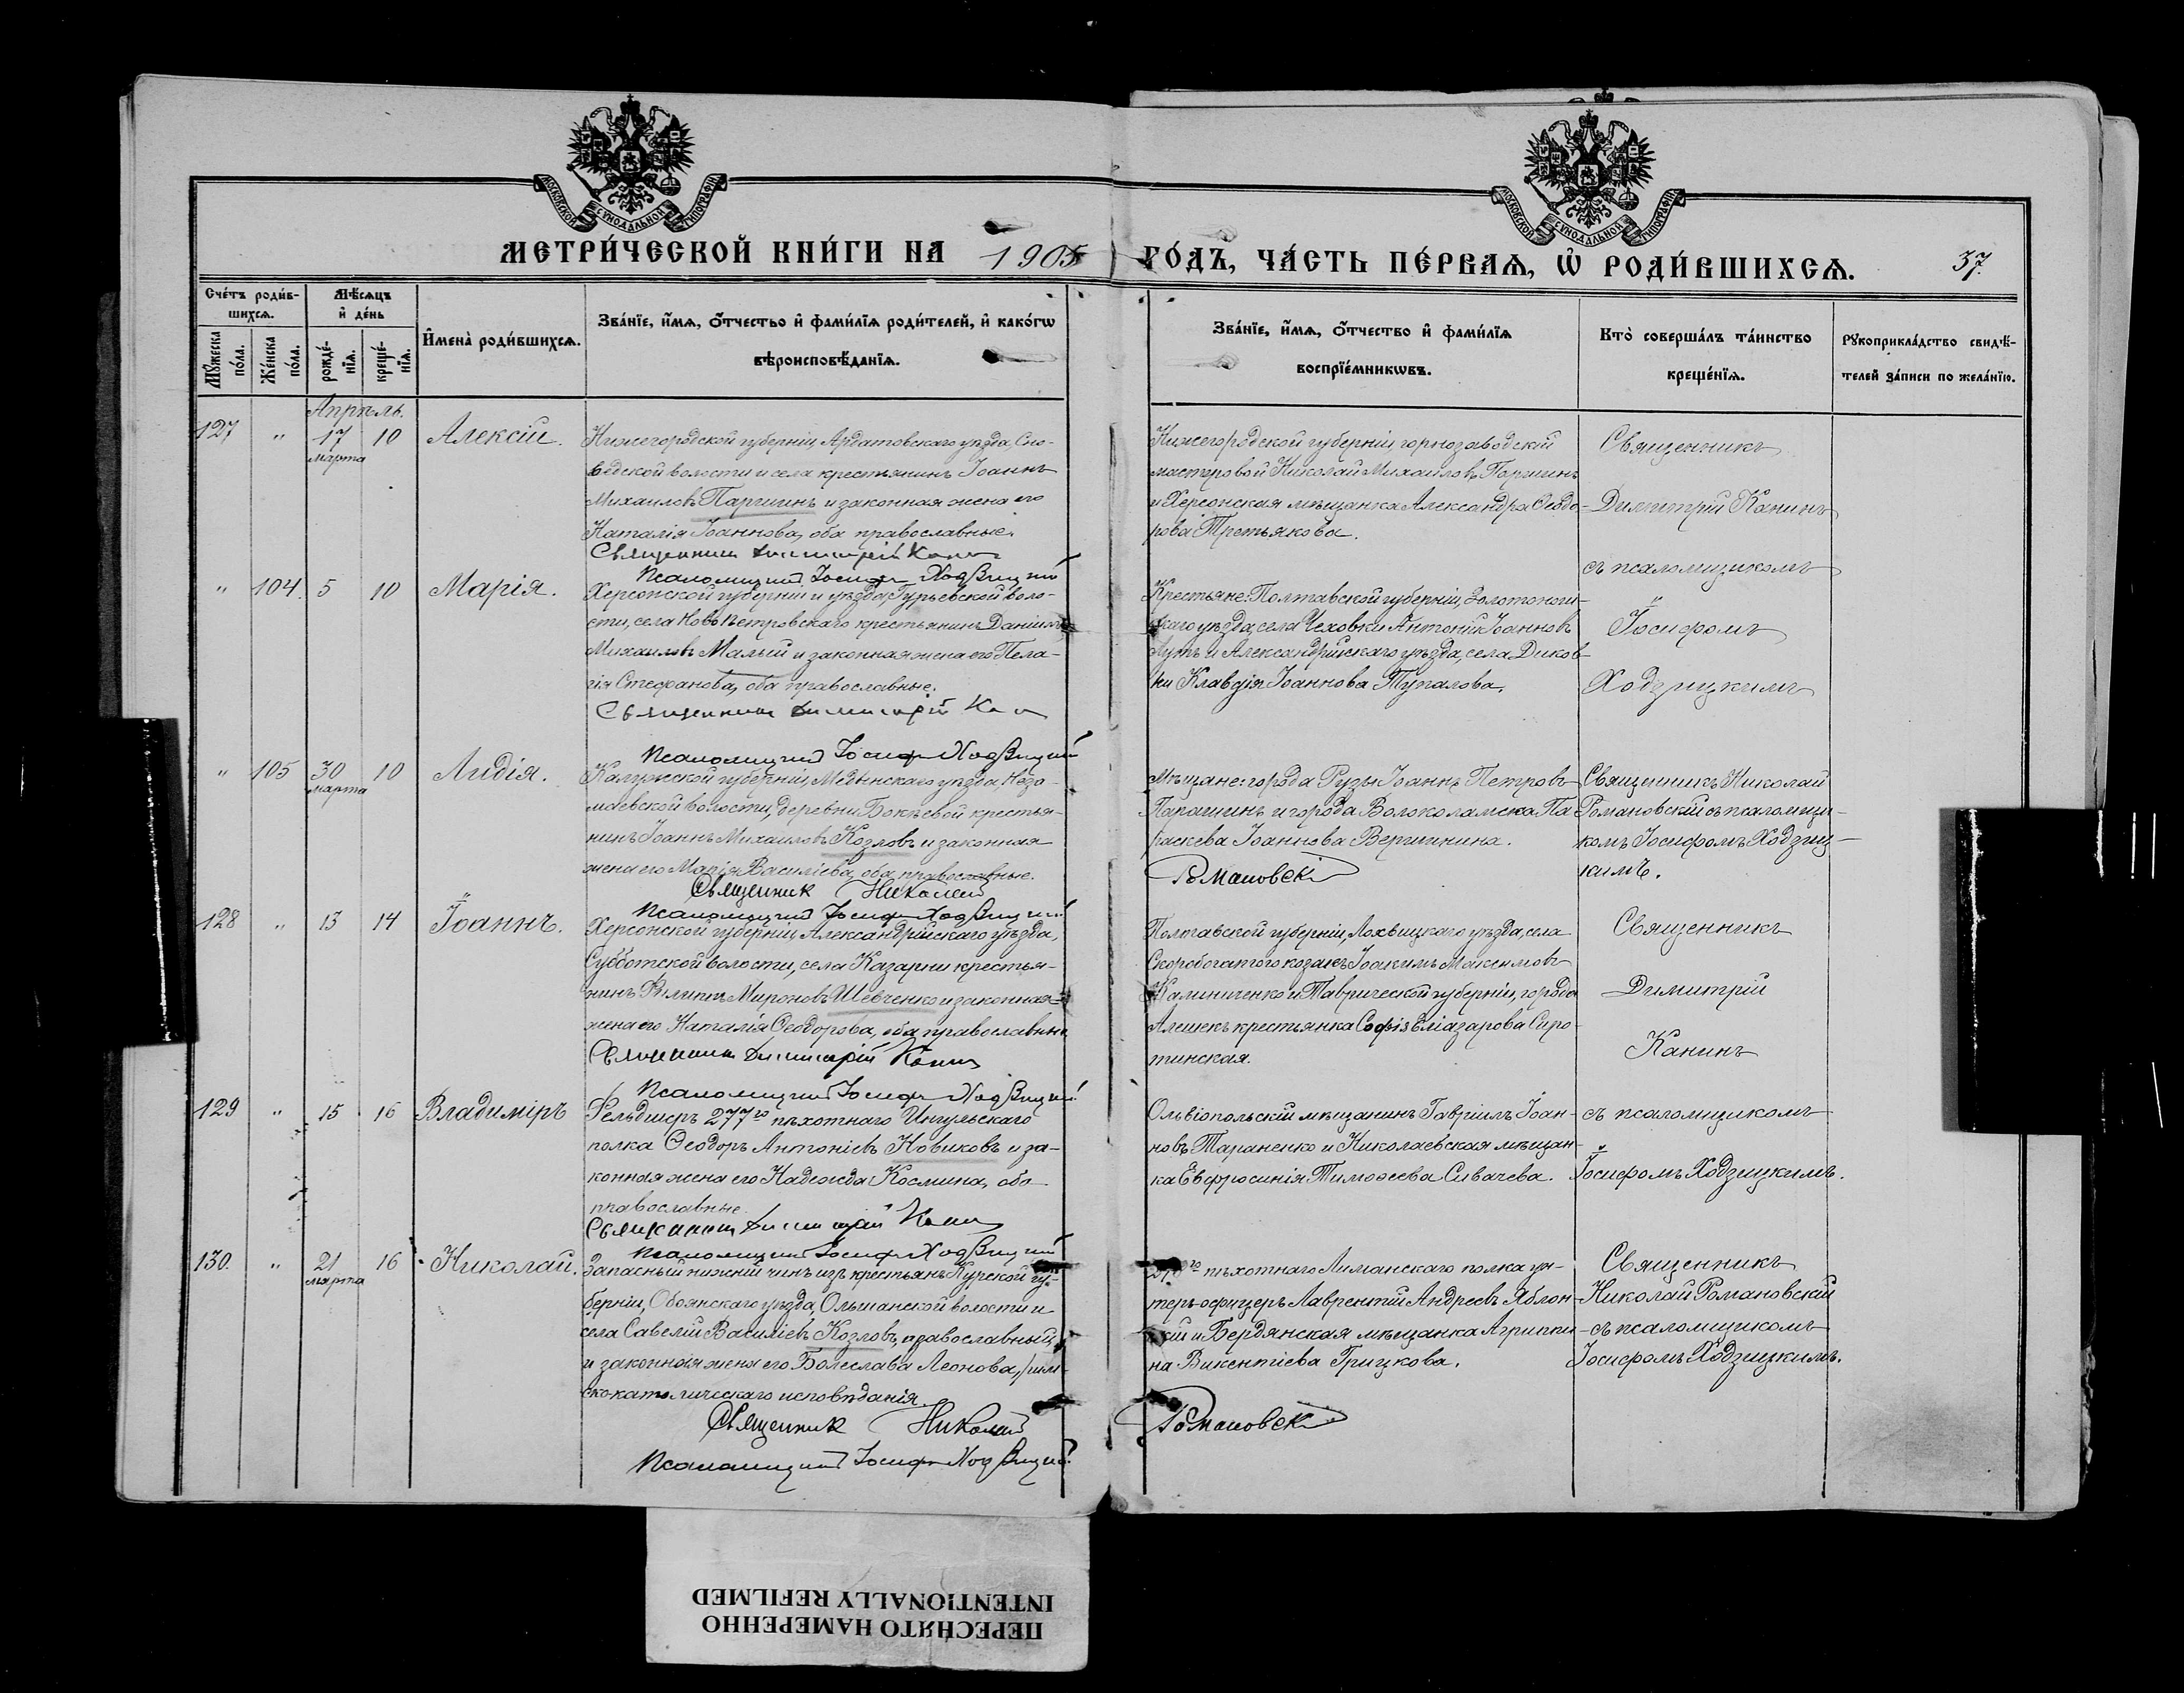 МОСКОВСКОЙ СУНОДАЛЬНОЙ ТИПОГРАФІИ
МОСКОВСКОЙ СУНОДАЛЬНОЙ ТИПОГРАФІИ
МЕТРИ́ЧЕСКОЙ КНИ́ГИ НА 1905 ГО́ДЪ, ЧА́СТЬ ПЕ́РВАѦ, Ѡ РОДИ́ВШИХСѦ. 37.
Сче́тъ роди́в-
шихсѧ.
Мѣ́сѧцъ
и҆ де́нь
Мꙋ́жеска
по́ла.
Же́нска
по́ла.
рожде́-
нїѧ.
креще́-
нїѧ.
И҆мена̀ роди́вшихсѧ.
Зва́нїе, и҆́мѧ, ѻ҆́тчество и҆ фами́лїѧ роди́телей, и҆ како́гѡ
вѣроисповѣ́данїѧ.
Зва́нїе, и҆́мѧ, ѻ҆́тчество и҆ фами́лїѧ
воспрїе́мникѡвъ.
Кто̀ соверша́лъ та́инство
креще́нїѧ.
Рꙋкоприкла́дство свидѣ́-
телей за́писи по жела́нїю.
Апрѣль.
127 " 17 10 Алексій.
марта
Нижегородской губерніи, Ардатовскаго уѣзда, Сно-
ведской волости и села крестьянинъ Іоаннъ
Михаиловъ Паршинъ и законная жена его
Наталія Іоаннова, оба православные.
Священникъ Димитрій Канинъ
Псаломщикъ Іосифъ Ходзицкій
Нижегородской губерніи, горнозаводскій
мастеровой Николай Михаиловъ Паршинъ
и Херсонская мѣщанка Александра Ѳеодо-
рова Третьякова.
Священникъ
Димитрій Канинъ
съ псаломщикомъ
" 104. 5 10 Марія.
Херсонской губерніи и уѣзда, Гурьевской воло-
сти, села Новопетровскаго крестьянинъ Даніилъ
Михаиловъ Малый и законная жена его Пела-
гія Стефанова, оба православные.
Священникъ Димитрій Канинъ
Псаломщикъ Іосифъ Ходзицкій
Крестьяне: Полтавской губерніи, Золотонош-
скаго уѣзда, села Чеховки Антоній Іоанновъ
Лутъ и Александрійскаго уѣзда, села Диков-
ки Клавдія Іоаннова Тупалова.
Іосифомъ
Ходзицкимъ
" 105 30 10 Лидія.
марта
Калужской губерніи, Медынскаго уѣзда,
волости, деревни Бокѣевой крестья-
нинъ Іоаннъ Михаиловъ Козловъ и законная
жена его Марія Василіева, оба православные.
Священникъ Николай
Псаломщикъ Іосифъ Ходзицкій
Мѣщане: города Рузы Іоаннъ Петровъ
Парашинъ и города Волоколамска Па-
раскева Іоаннова Вершинина.
Романовскій
Священникъ Николай
Романовскій съ псаломщи-
комъ Іосифомъ Ходзиц-
кимъ.
128 " 13 14 Іоаннъ.
Херсонской губерніи, Александрійскаго уѣзда,
Субботской волости, села Казарни крестья-
нинъ Филиппъ Мироновъ Шевченко и законная
жена его Наталія Ѳеодорова, оба православные
Священникъ Димитрій Канинъ
Псаломщикъ Іосифъ Ходзицкій
Полтавской губерніи, Лохвицкаго уѣзда, села
Скоробогатого козакъ Іоакимъ Максимовъ
Калиниченко и Таврической губерніи, города
Алешекъ крестьянка Софія Еліазарова Сиро-
тинская.
Священникъ
Димитрій
Канинъ
129 " 15 16 Владиміръ
Фельдшеръ 277го пѣхотнаго Ингульскаго
полка Ѳеодоръ Антоніевъ Новиковъ и за-
конная жена его Надежда Космина, оба
православные.
Священникъ Димитрій Канинъ
Псаломщикъ Іосифъ Ходзицкій
Ольвіопольскій мѣщанинъ Гавріилъ Іоан-
новъ Тараненко и Николаевская мѣщан-
ка Евфросинія Тимоѳеева Сивачева.
съ псаломщикомъ
Іосифомъ Ходзицкимъ.
130. " 21 16 Николай.
марта
Запасный нижній чинъ изъ крестьянъ Курской гу-
берніи, Обоянскаго уѣзда, Ольшанской волости и
села Савелій Василіевъ Козловъ, православный,
и законная жена его Болеслава Леонова, рим-
ско-католическаго исповѣданія.
Священникъ Николай
Псаломщикъ Іосифъ Ходзицкій
пѣхотнаго Лиманскаго полка ун-
теръ-офицеръ Лаврентій Андреевъ Яблон-
скій и Бердянская мѣщанка Агриппи-
на Викентіева Грицкова.
Романовскій
Священникъ
Николай Романовскій
съ псаломщикомъ
Іосифомъ Ходзицкимъ.
ПЕРЕСНЯТО НАМЕРЕННО
INTENTIONALLY REFILMED